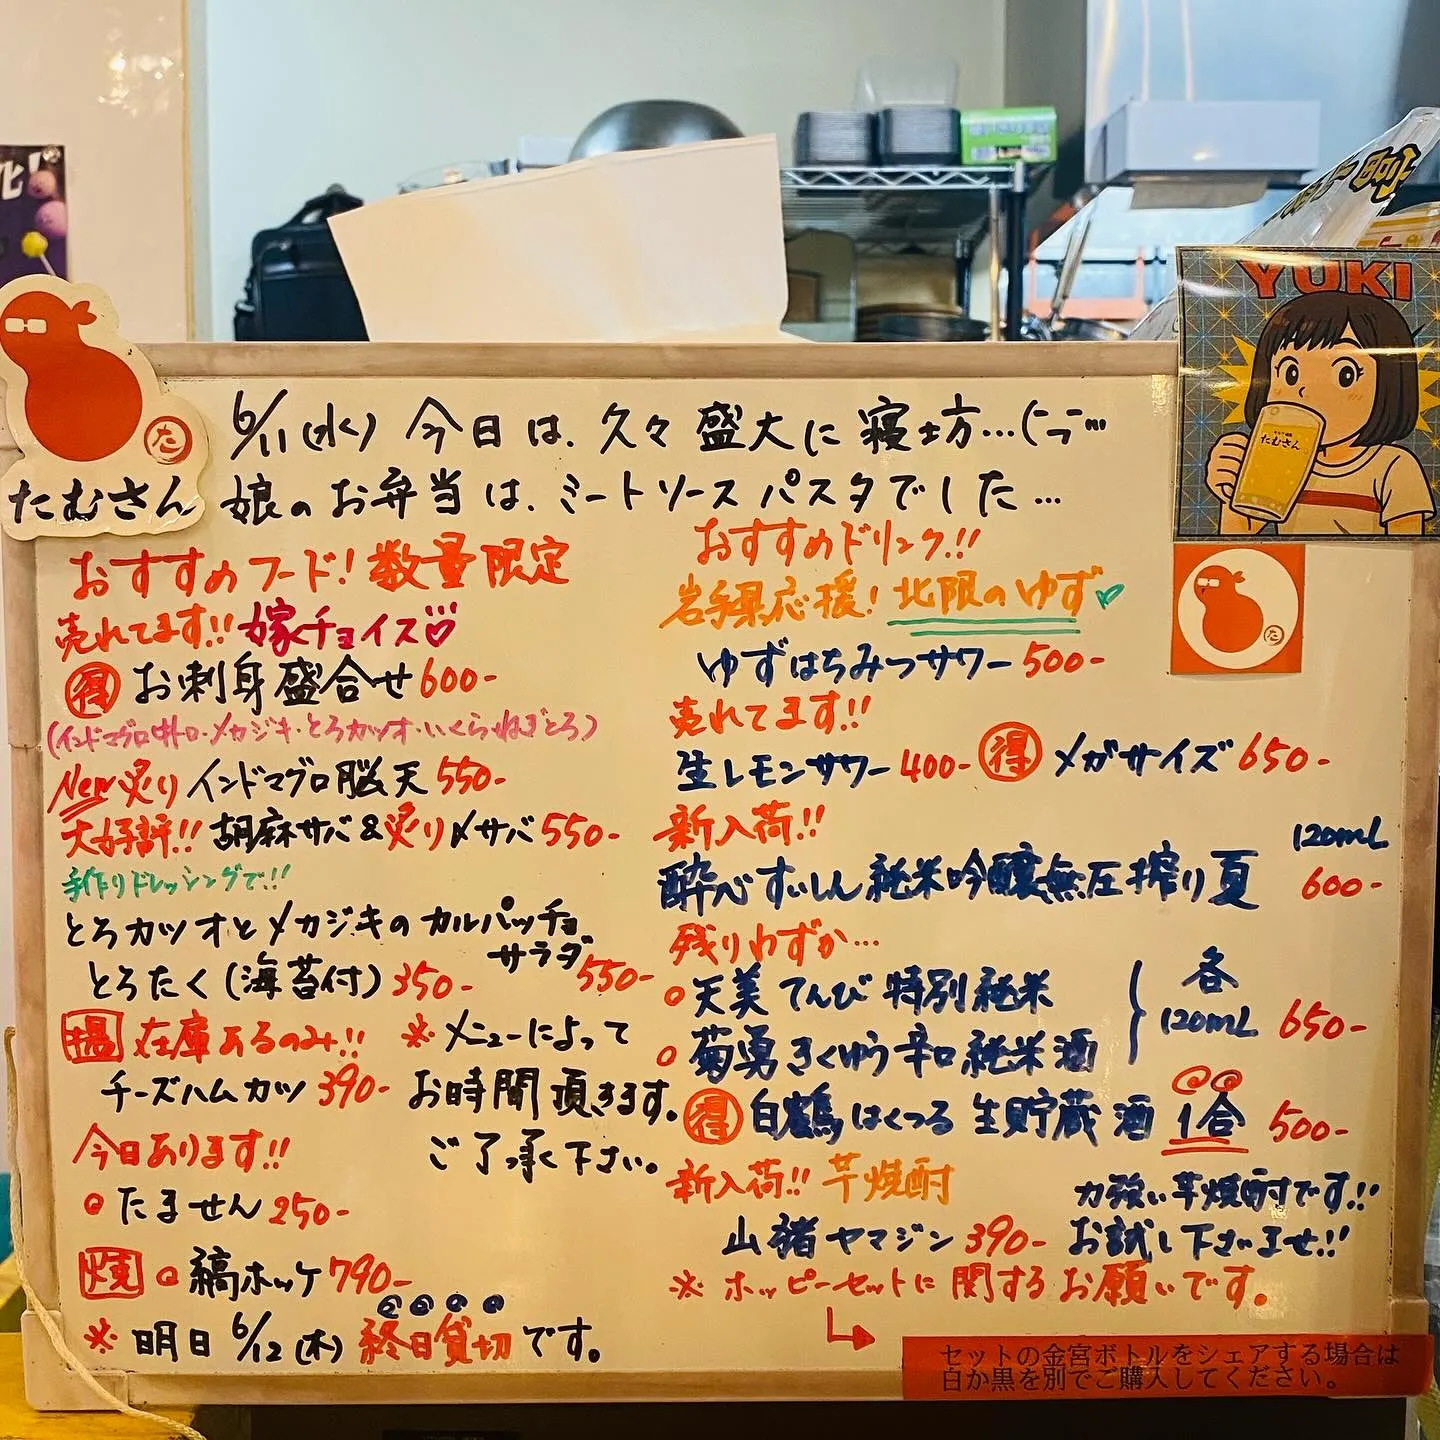 6/11(水) 今日は、久々盛大に寝坊…
娘のお弁当は、ミートソースパスタでした…
たむさん
た
YUKI
たむさん
た
おすすめフード！数量限定
売れてます!! 嫁チョイス♡
得 お刺身盛合せ 600-
(インドマグロ中トロ・メカジキ・とろカツオ・いくら・ねぎとろ)
New 炙り インドマグロ脳天 550-
大好評!! 胡麻サバ&炙り〆サバ 550-
手作りドレッシングで!!
とろカツオとメカジキのカルパッチョ
サラダ 550-
とろたく(海苔付) 350-
揚 在庫あるのみ!!
チーズハムカツ 390-
※メニューによって
お時間頂きます。
ご了承下さい。
今日あります!!
たません 250-
焼 縞ホッケ 790-
※明日 6/12(木) 終日貸切です。
おすすめドリンク!!
岩手県応援！北限のゆず♡
ゆずはちみつサワー 500-
売れてます!!
生レモンサワー 400- 得 メガサイズ 650-
新入荷!!
酔心 すいしん 純米吟醸無圧搾り夏 120mL 600-
残りわずか…
天美 てんび 特別純米
菊勇 きくゆう 辛口純米酒
各 120mL 650-
得 白鶴 はくつる 生貯蔵酒 1合 500-
新入荷!! 芋焼酎
山猪 ヤマジシ 390-
力強い芋焼酎です!!
お試し下さいませ!!
※ホッピーセットに関するお願いです。
セットの金宮ボトルをシェアする場合は
白か黒を別でご購入してください。